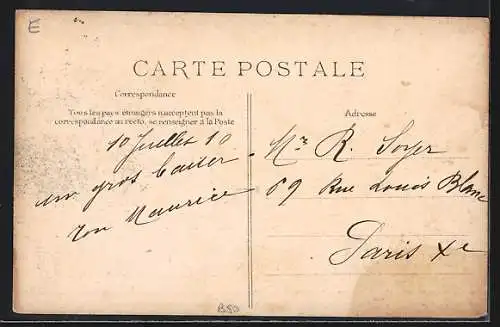 E
CARTE POSTALE
Correspondance
Tous les pays étrangers n'acceptent pas la
correspondance au recto, se renseigner à la Poste
10 Juillet 10
un gros baiser
Ton Maurice
Adresse
Mr R. Soyer
69 Rue Louis Blanc
Paris Xe